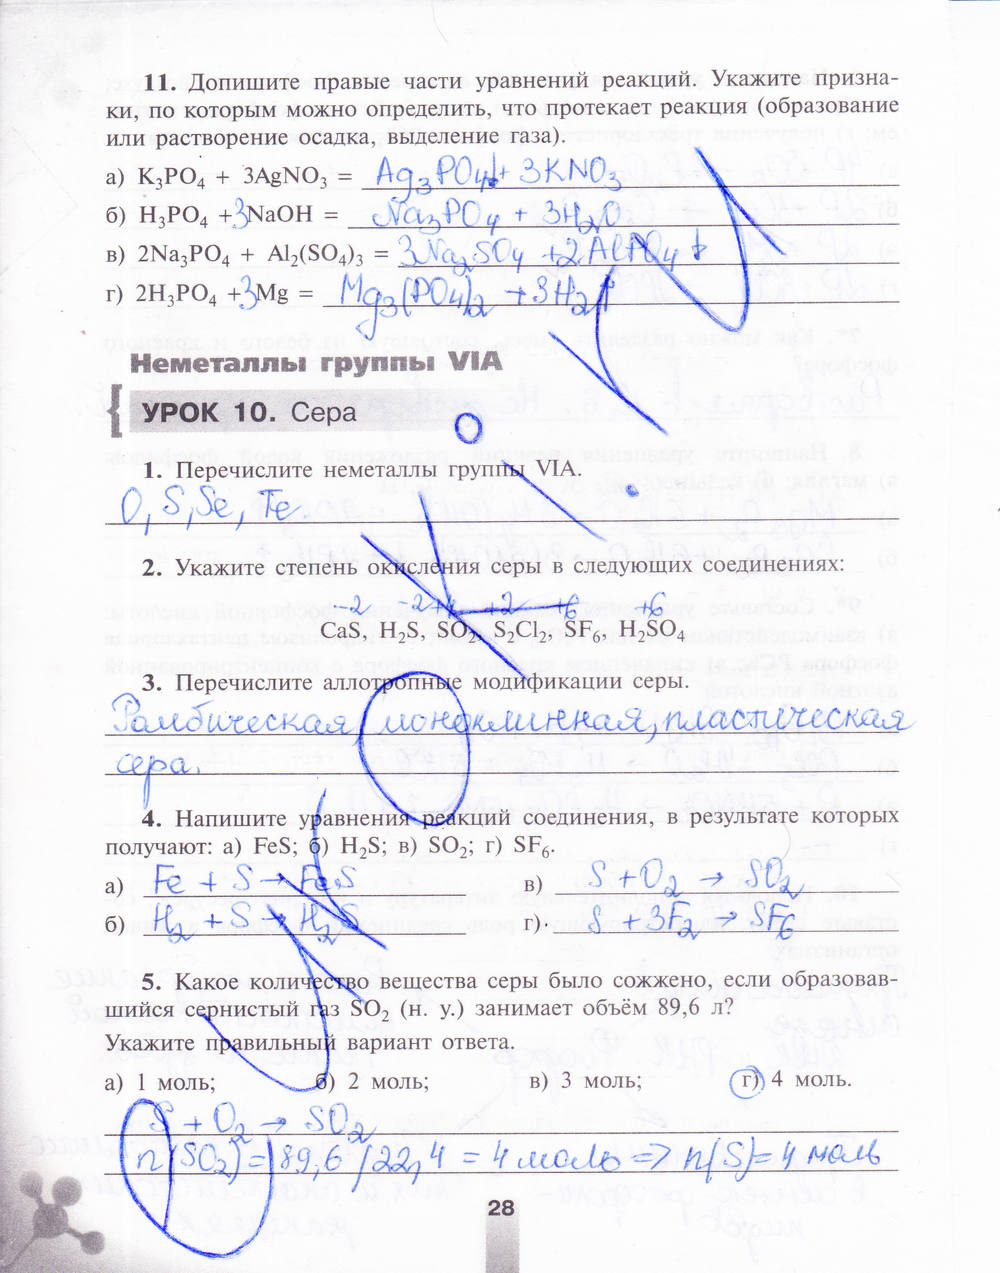 11. Допишите правые части уравнений реакций. Укажите призна-
ки, по которым можно определить, что протекает реакция (образование
или растворение осадка, выделение газа).
а) K₃PO₄ + 3AgNO₃ = Ag₃PO₄↓ + 3KNO₃
б) H₃PO₄ + 3NaOH = Na₃PO₄ + 3H₂O
в) 2Na₃PO₄ + Al₂(SO₄)₃ = 3Na₂SO₄ + 2AlPO₄↓
г) 2H₃PO₄ + 3Mg = Mg₃(PO₄)₂ + 3H₂↑
Неметаллы группы VIA
УРОК 10. Сера
1. Перечислите неметаллы группы VIA.
O, S, Se, Te
2. Укажите степень окисления серы в следующих соединениях:
-2 -2 +4 +2 +6 +6
CaS, H₂S, SO₂, S₂Cl₂, SF₆, H₂SO₄
3. Перечислите аллотропные модификации серы.
Ромбическая, моноклинная, пластическая
сера.
4. Напишите уравнения реакций соединения, в результате которых
получают: а) FeS; б) H₂S; в) SO₂; г) SF₆.
а) Fe + S → FeS в) S + O₂ → SO₂
б) H₂ + S → H₂S г) S + 3F₂ → SF₆
5. Какое количество вещества серы было сожжено, если образовав-
шийся сернистый газ SO₂ (н. у.) занимает объём 89,6 л?
Укажите правильный вариант ответа.
а) 1 моль; б) 2 моль; в) 3 моль; г) 4 моль.
S + O₂ → SO₂
n(SO₂) = 89,6/22,4 = 4 моль => n(S) = 4 моль
28